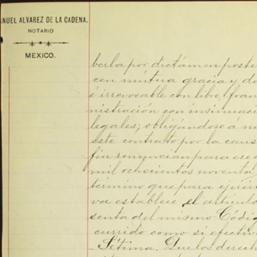 ANUEL ALVAREZ DE LA CADENA.
NOTARIO
MEXICO.
berla por dictámen poste
cen mútua gracia y do
é irrevocable con libre, fran
nistración con insinuac
legales; obligándose á no
este contrato por la caus
fin renuncian para ese
mil ochocientos noventa
término que para ejerci
va establece el artículo
senta del mismo Códi
currido como si efectiv
Sétima. Que los derech